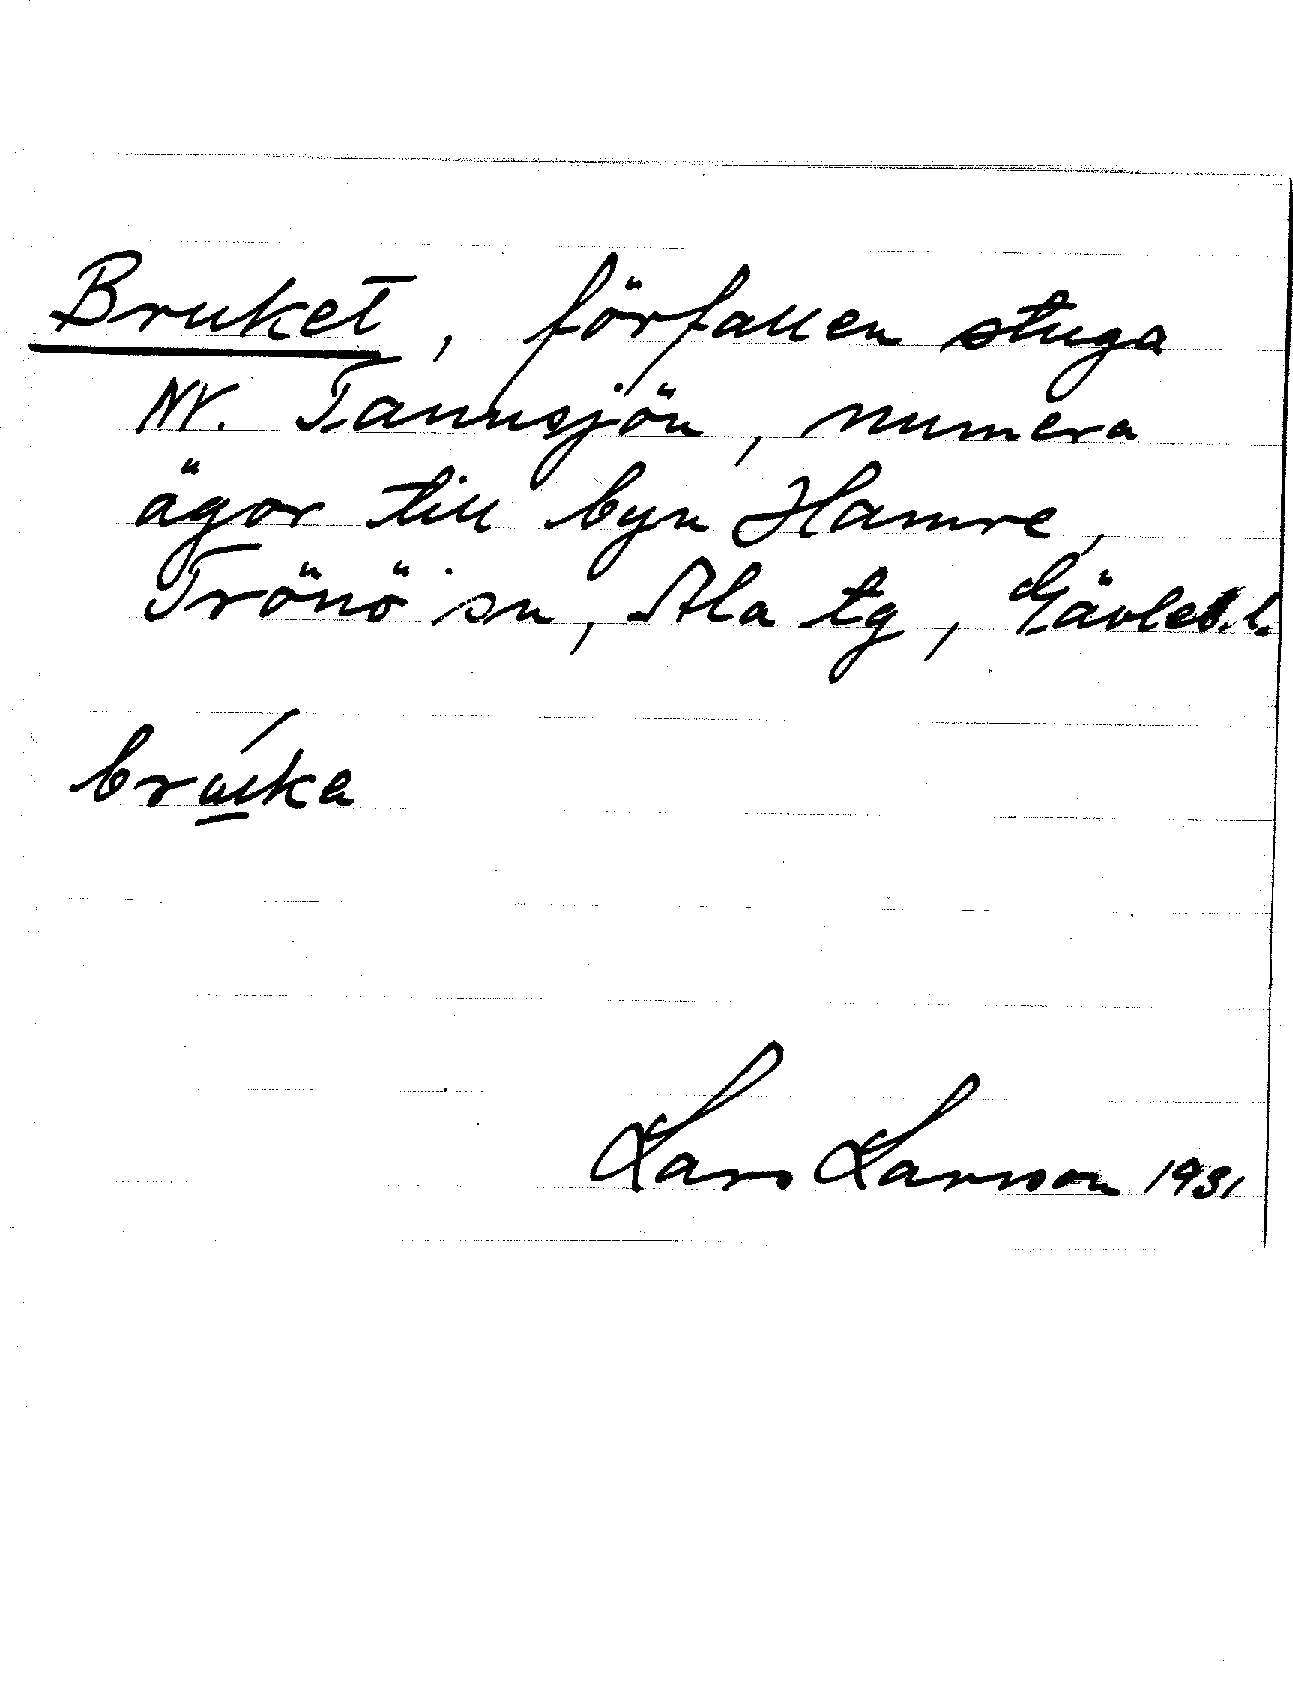 Bruket, förfallen stuga
NV. Tannsjön, numera
ägor till byn Hamre,
Trönö sn, Ala tg, Gävleb.l.
brúka
Lars Larsson 1931